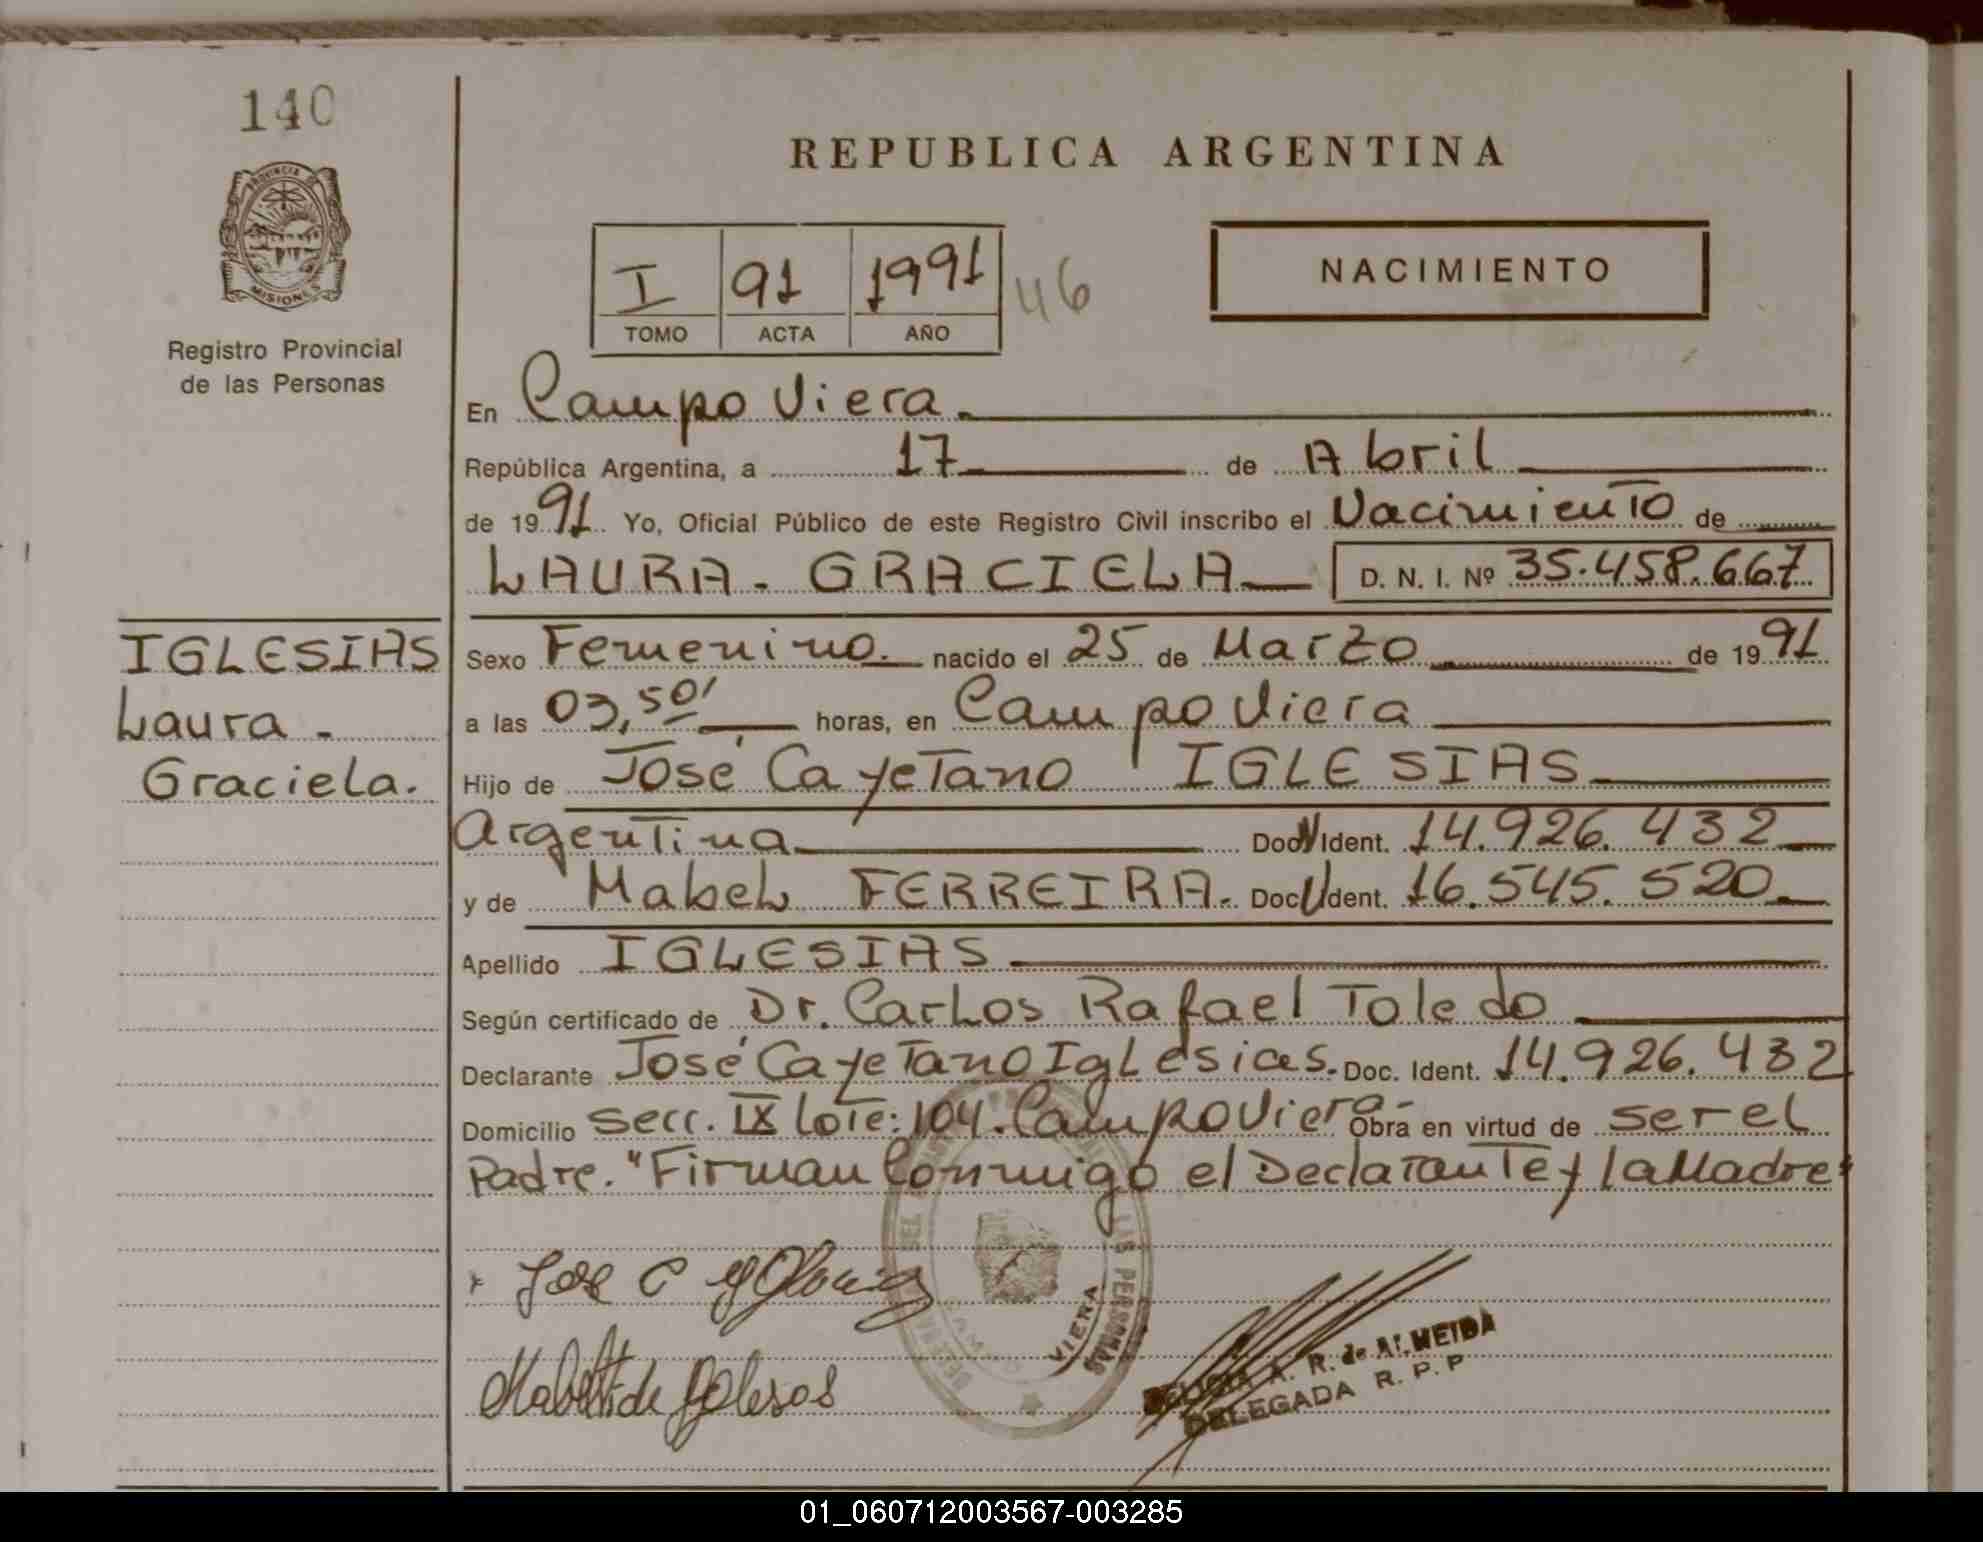 140
REPUBLICA ARGENTINA
PROVINCIA DE
MISIONES
I 91 1991 46
TOMO ACTA AÑO
NACIMIENTO
Registro Provincial
de las Personas
En Campo Viera.
República Argentina, a 17 de Abril
de 1991 Yo, Oficial Público de este Registro Civil inscribo el Nacimiento de
LAURA - GRACIELA D. N. I. Nº 35.458.667
IGLESIAS
Laura -
Graciela.
Sexo Femenino. nacido el 25 de Marzo de 1991
a las 03,50' horas, en Campo Viera
Hijo de José Cayetano IGLESIAS
Argentina Doc. Ident. 14.926.432
y de Mabel FERREIRA. Doc. Ident. 16.545.520
Apellido IGLESIAS
Según certificado de Dr. Carlos Rafael Toledo
Declarante José Cayetano Iglesias. Doc. Ident. 14.926.432
Domicilio Secc. IX Lote: 104. Campo Viera- Obra en virtud de ser el
Padre. "Firman Conmigo el Declarante y la Madre"
Jose C
VIERA
LAS PERSONAS
A. R. de ALMEIDA
DELEGADA R. P. P
01_060712003567-003285